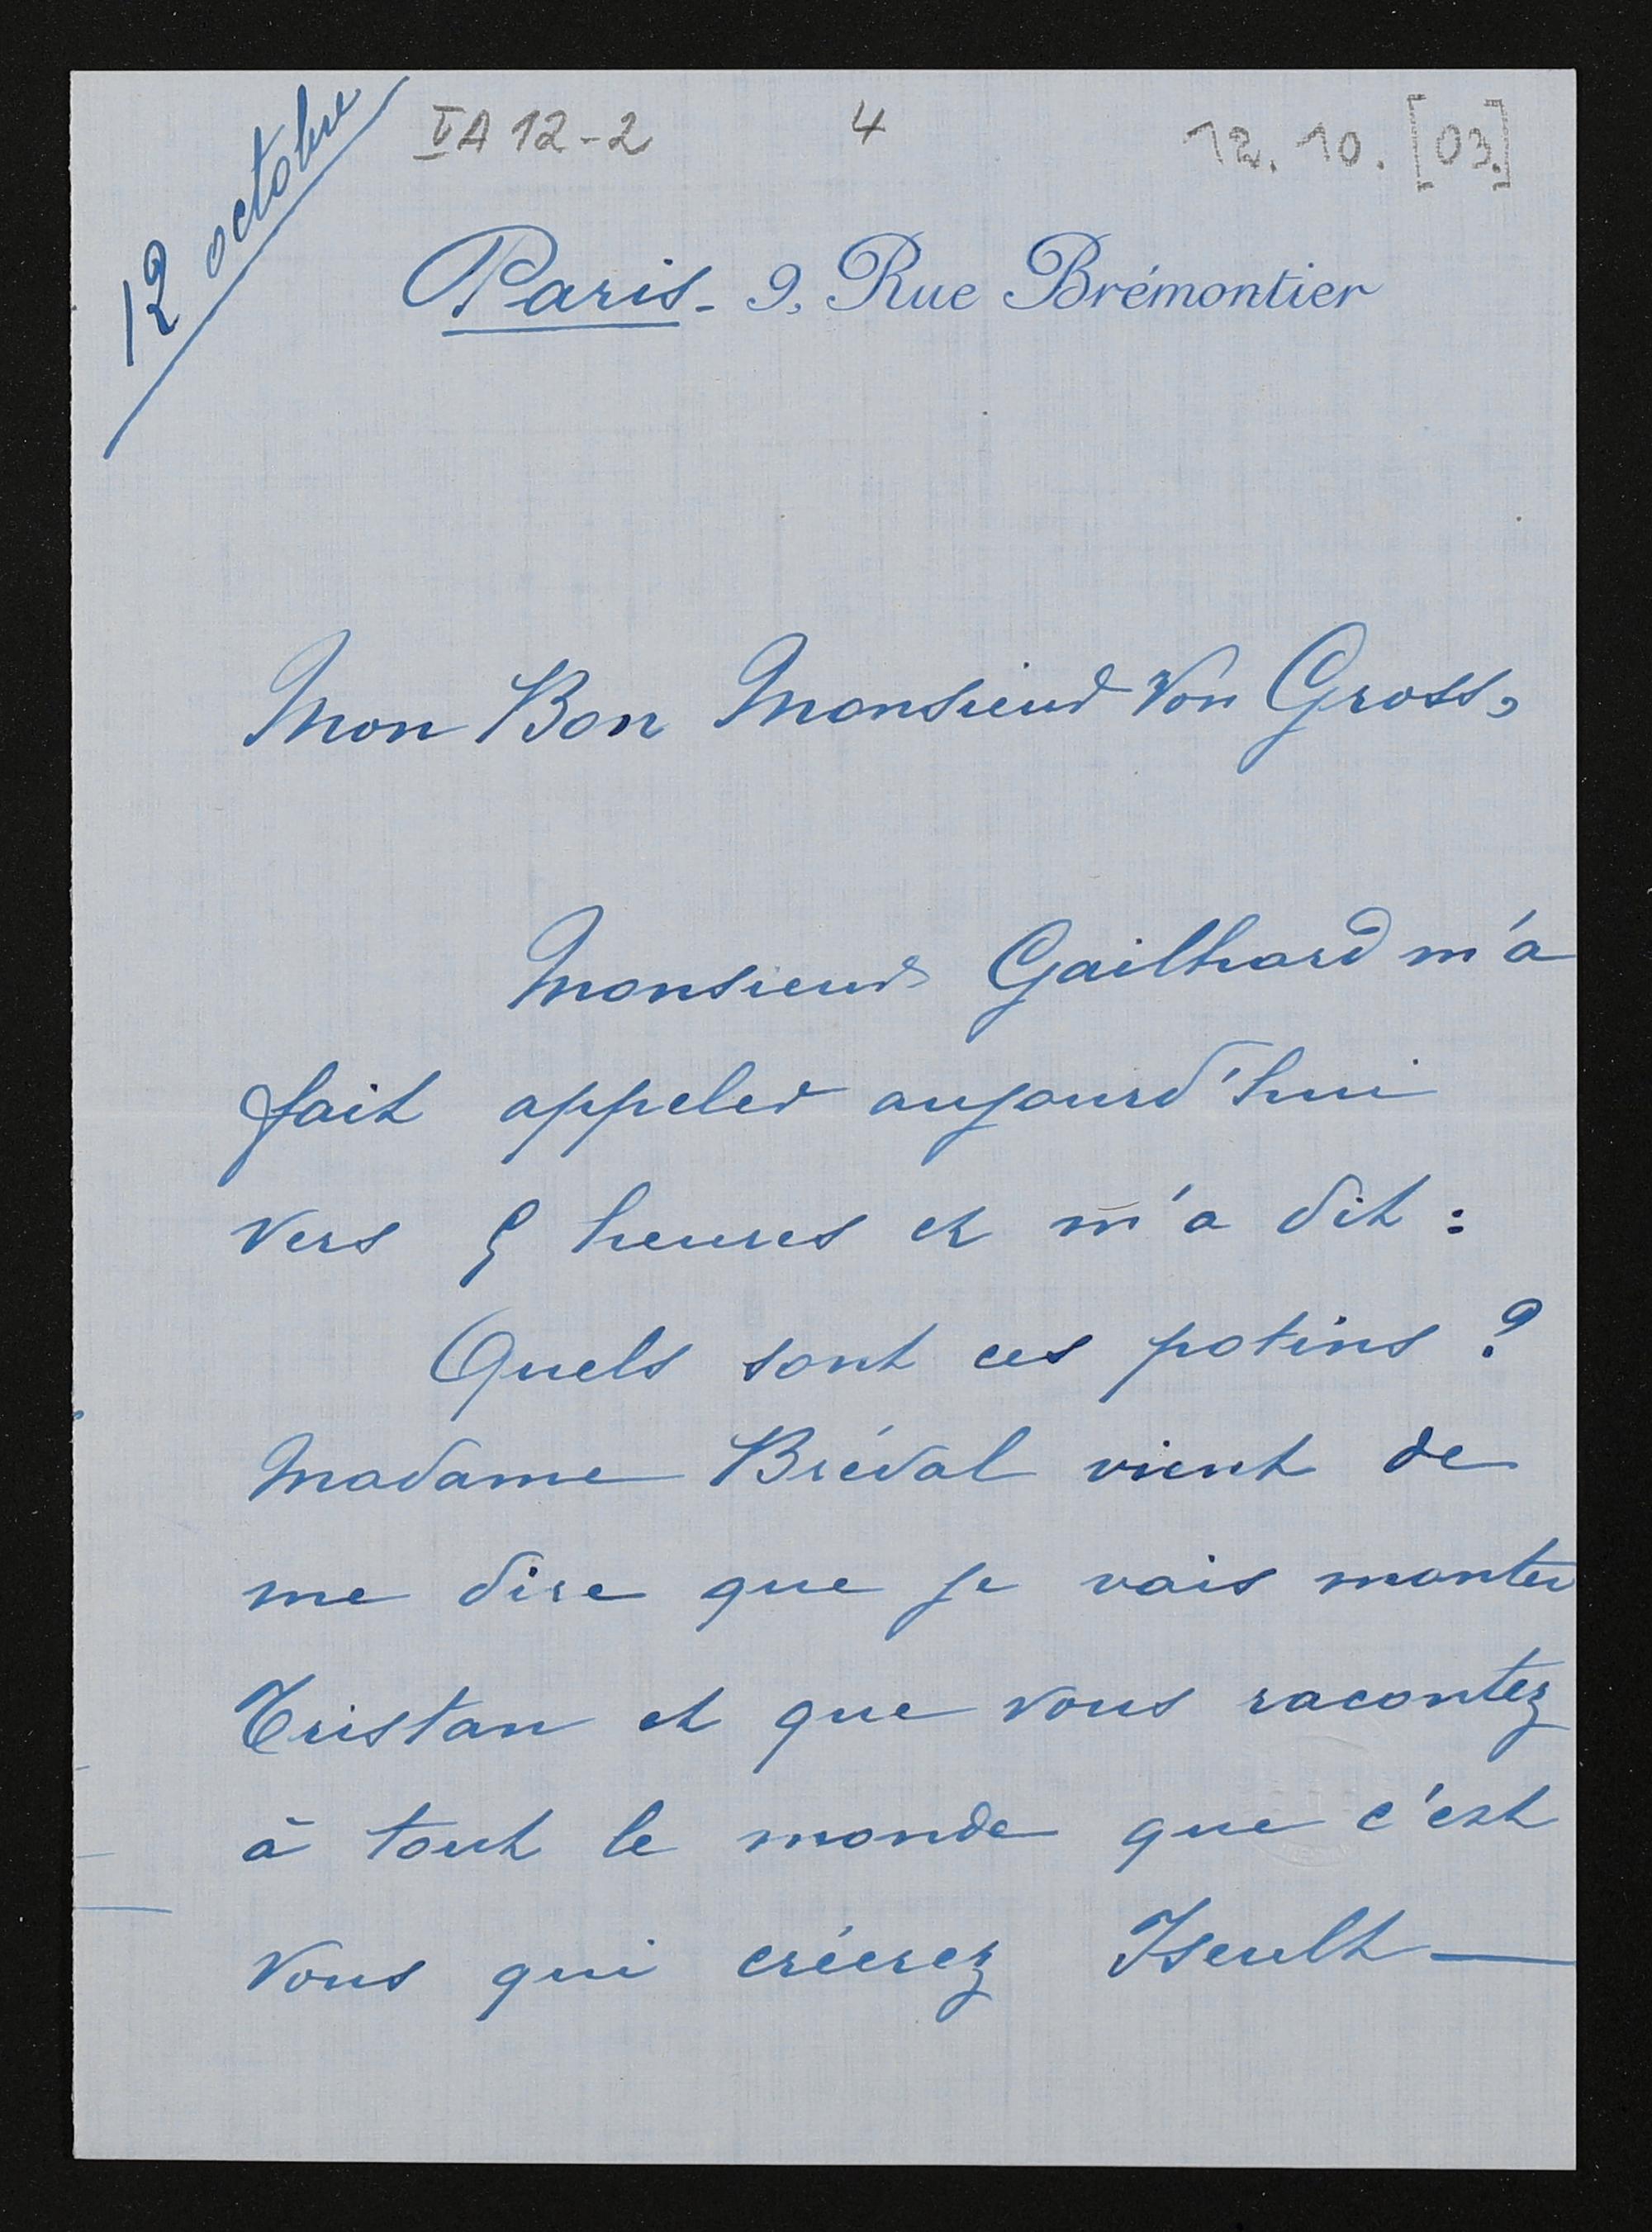 12 octobre
VA 12-2
4
12. 10. [03.]
Paris - 9, Rue Brémontier
Mon Bon Monsieur Von Gross,
Monsieur Gailhard m'a
fait appeler aujourd'hui
vers 5 heures et m'a dit :
Quels sont ces potins ?
Madame Bréval vient de
me dire que je vais monter
Tristan et que vous racontez
à tout le monde que c'est
vous qui créerez Iseult —